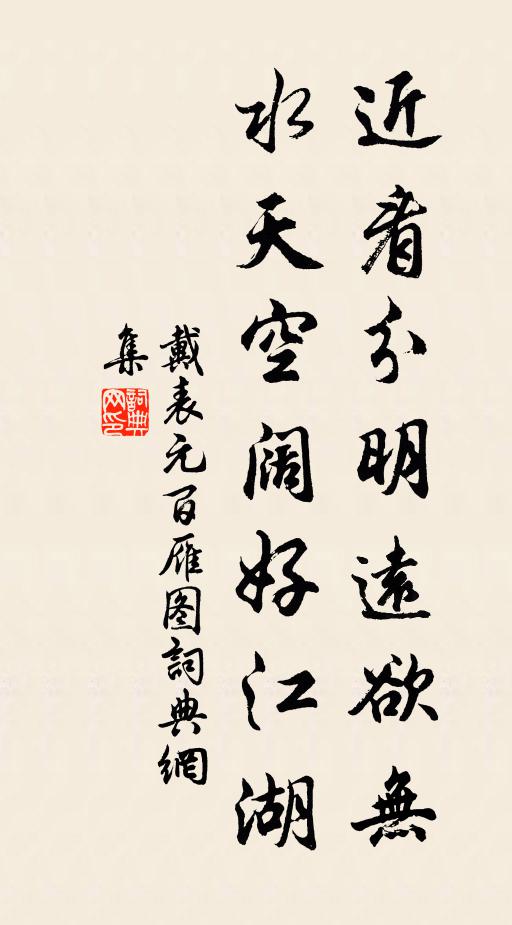 近看分明遠欲無
水天空闊好江湖
戴表元百雁图詞典網
集
詞典
网印